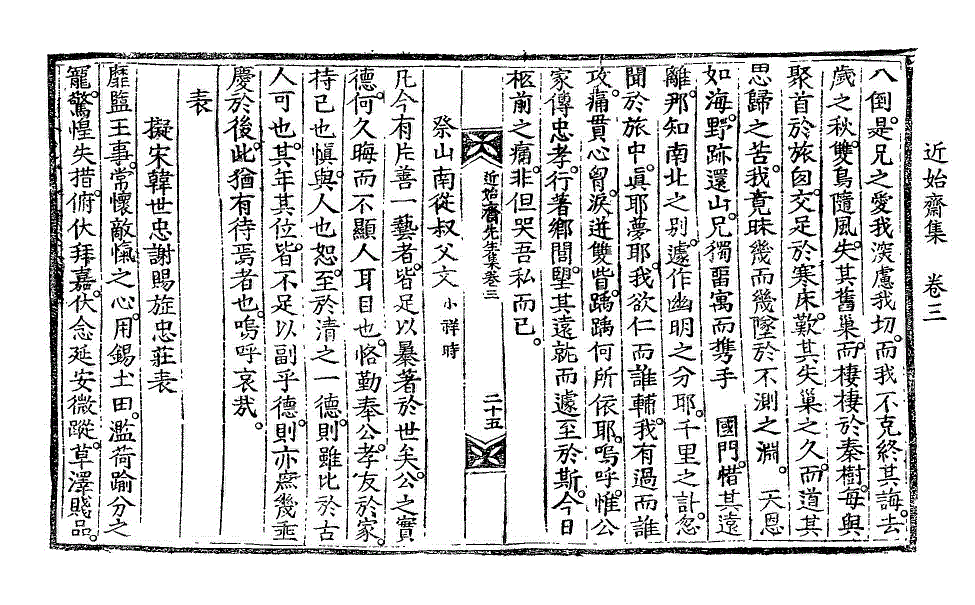 近始齋集　卷三
八倒。是兄之愛我深慮我切。而我不克終其誨。去
歲之秋。雙鳥隨風。失其舊巢。而棲棲於秦樹。每與
聚首於旅囱。交足於寒床。歎其失巢之久。而道其
思歸之苦。我竟昧幾而幾墜於不測之淵。　天恩
如海。野跡還山。兄獨留寓而携手　國門。惜其遠
離。那知南北之别。遽作幽明之分耶。千里之訃。忽
聞於旅中。眞耶夢耶。我欲仁而誰輔。我有過而誰
攻。痛貫心曾。淚迸雙眥。踽踽何所依耶。嗚呼。惟公
家傳忠孝。行著鄕閭。朢其遠就而遽至於斯。今日
柩前之痛。非但哭吾私而已。
近始齋先生集卷三　二十五
祭山南從叔父文 小祥時
凡今有片善一藝者。皆足以暴著於世矣。公之實
德。何久晦而不顯人耳目也。恪勤奉公。孝友於家。
持己也愼。與人也恕。至於淸之一德。則雖比於古
人可也。其年其位。皆不足以副乎德。則亦庶幾垂
慶於後。此猶有待焉者也。嗚呼哀哉。
表
擬宋韓世忠謝賜旌忠莊表
靡盬王事。常懷敵愾之心。用錫土田。濫荷踰分之
寵。驚惶失措。俯伏拜嘉。伏念延安微蹤。草澤賤品。